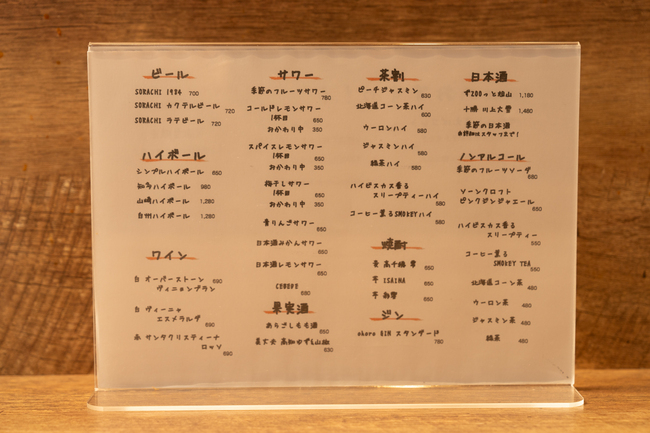 ビール
SORACHI 1984 700
SORACHI カクテルビール 720
SORACHI ラテビール 720
ハイボール
シンプルハイボール 650
知多ハイボール 980
山崎ハイボール 1,280
白州ハイボール 1,280
ワイン
白 オーバーストーン 690
ソーヴィニョンブラン
白 ヴィーニャ
エスメラルダ 690
赤 サンタクリスティーナ
ロッソ 690
サワー
季節のフルーツサワー 780
コールドレモンサワー
1杯目 650
おかわり中 350
スパイスレモンサワー
1杯目 650
おかわり中 350
梅干しサワー
1杯目 650
おかわり中 350
青りんごサワー 650
日本酒みかんサワー 650
日本酒レモンサワー 650
680
果実酒
あらごしもも酒 650
高知ゆず&山椒 630
茶割
ピーチジャスミン 630
北海道コーン茶ハイ 600
ウーロンハイ 580
ジャスミンハイ 580
緑茶ハイ 580
ハイビスカス香る
スリープティーハイ 580
コーヒー薫るSMOKEYハイ 580
焼酎
麦 高千穂 零 650
芋 ISAINA 650
芋 650
ジン
ohoro GIN スタンダード 780
日本酒
1,180
十勝 川上大雪 1,480
季節の日本酒
詳細はスタッフまで!
ノンアルコール
季節のフルーツソーダ 680
ソーンクロフト
ピンクジンジャエール 650
ハイビスカス香る
スリープティー 550
コーヒー薫る
SMOKEY TEA 550
北海道コーン茶 480
ウーロン茶 480
ジャスミン茶 480
緑茶 480